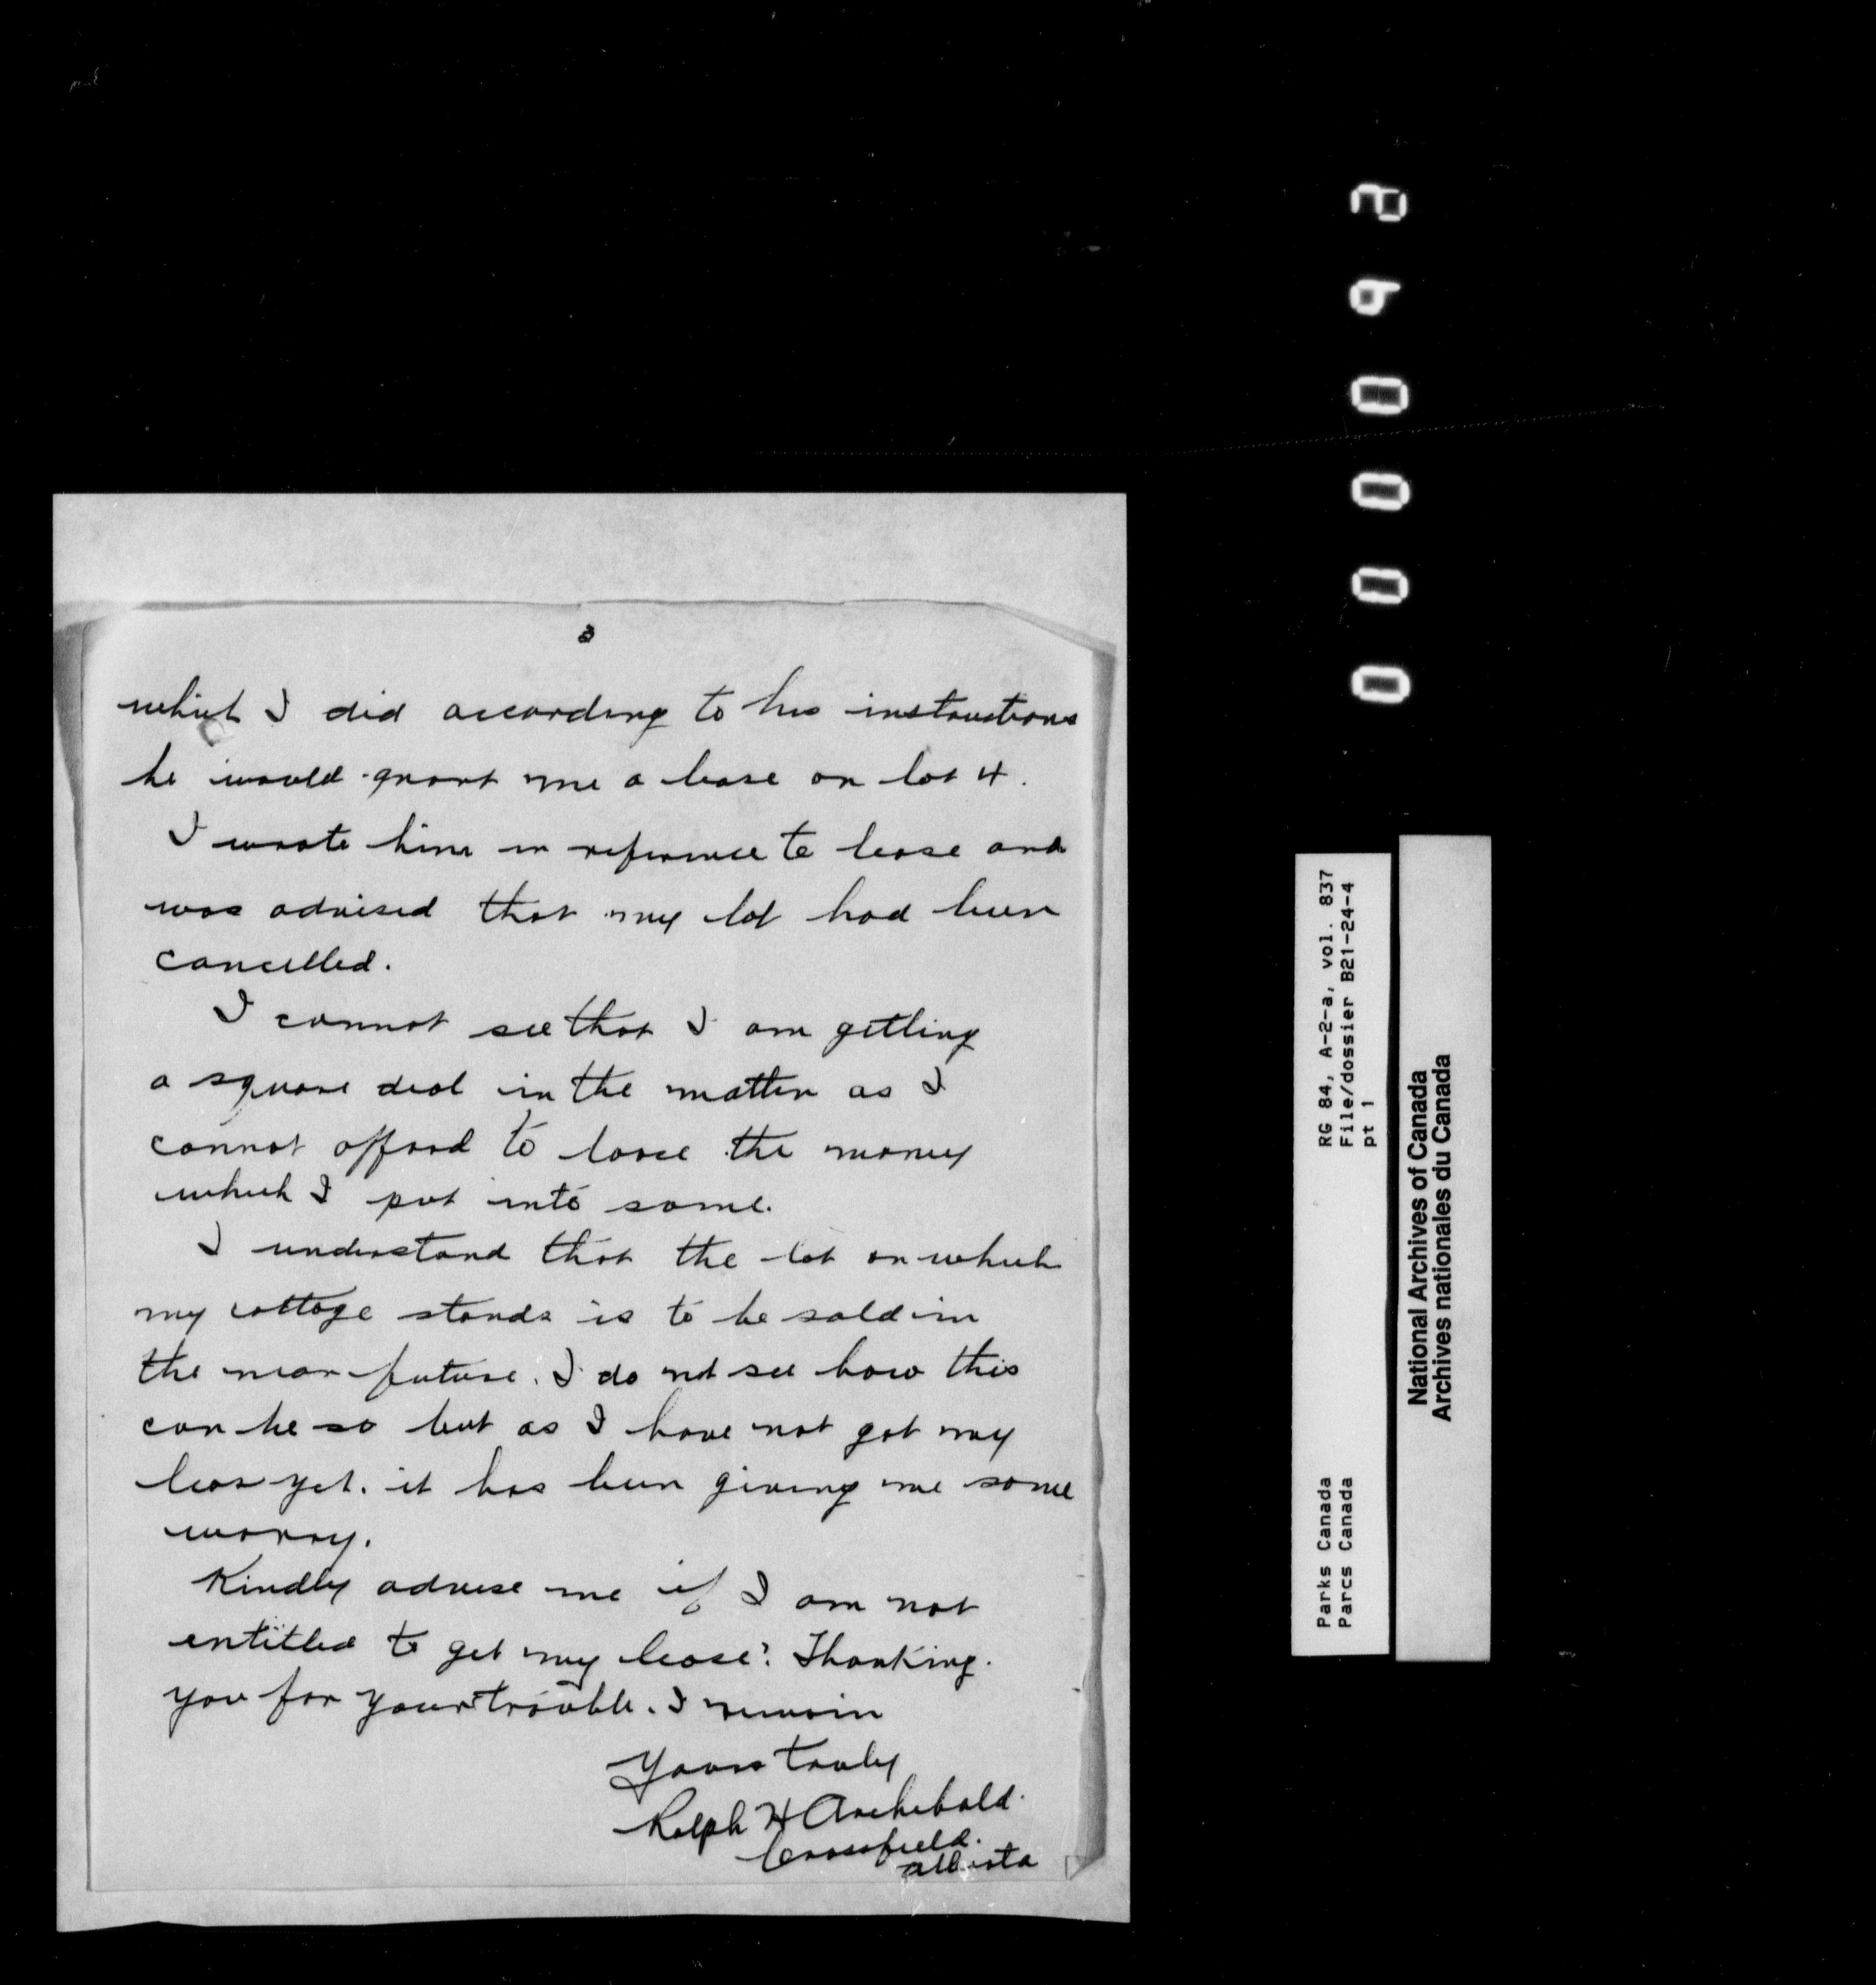 3
which I did according to his instructions
he would grant me a lease on lot 4.
I wrote him in reference to lease and
was advised that my lot had been
cancelled.
I cannot see that I am getting
a square deal in the matter as I
cannot afford to loose the money
which I put into same.
I understand that the lot on which
my cottage stands is to be sold in
the near future. I do not see how this
can be so but as I have not got my
leas yet. it has been giving me some
worry.
Kindly advise me if I am not
entitled to get my lease? Thanking.
you for your trouble. I remain
Yours truly
Ralph H Archibald.
Crossfield.
Alberta
000092
RG 84, A-2-a, vol. 837
File/dossier B21-24-4
pt 1
Parks Canada
Parcs Canada
National Archives of Canada
Archives nationales du Canada